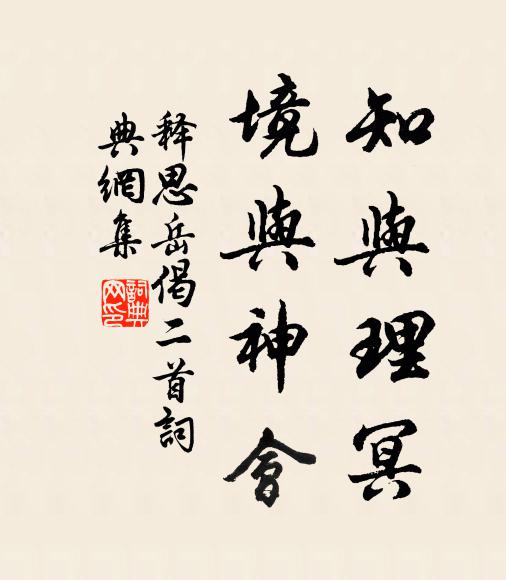 知與理冥
境與神會
釋思岳偈二首詞
典網集
詞典
网印